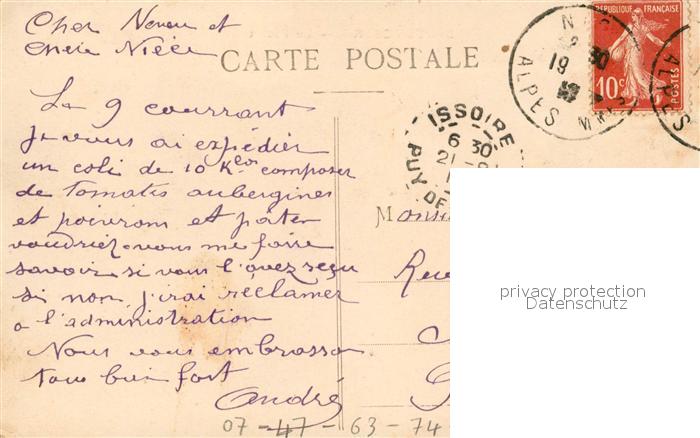 Cher Neveu et
chère Nièce
CARTE POSTALE
RÉPUBLIQUE FRANÇAISE
10c
ALPES MMES
19
30
ALPES
ISSOIRE
6 30
21
PUY DE
Le 9 courrant
Je vous ai expédier
un coli de 10 Klos composer
de Tomates aubergines
et poivrons et pâter
voudriez-vous me faire
savoir si vous l'avez reçu
si non j'irai reclamer
a l'administration
Nous vous embrasson
tous bien fort
André
Monsi
Rece
privacy protection
Datenschutz
07-47-63-74